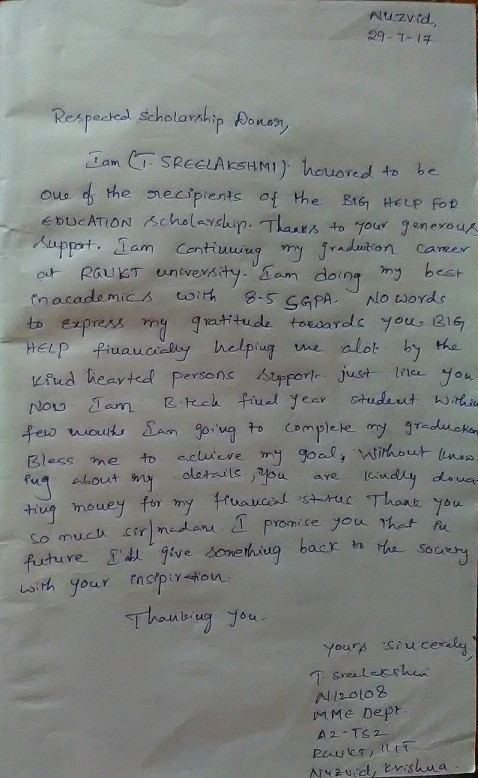 Nuzvid,
29-7-17
Respected Scholarship Donor,
I am (T. SREELAKSHMI) honored to be
one of the recipients of the BIG HELP FOR
EDUCATION Scholarship. Thanks to your generous
support. I am continuing my gradution career
at RGUKT university. I am doing my best
in academics with 8.5 SGPA. No words
to express my gratitude towards you BIG
HELP financially helping me alot by the
kind hearted persons support just like you
Now I am B.tech final year student within
few months I am going to complete my graduction
Bless me to achieve my goal, without know
ing about my details, you are kindly dona
ting money for my financial status. Thank you
so much sir/madam. I promise you that in
future I'll give something back to the society
with your inspiration.
Thanking you.
yours sincerely,
T. Sreelakshmi
N120108
MME Dept
A2-TS2
RGUKT, IIIT
Nuzvid, Krishna.